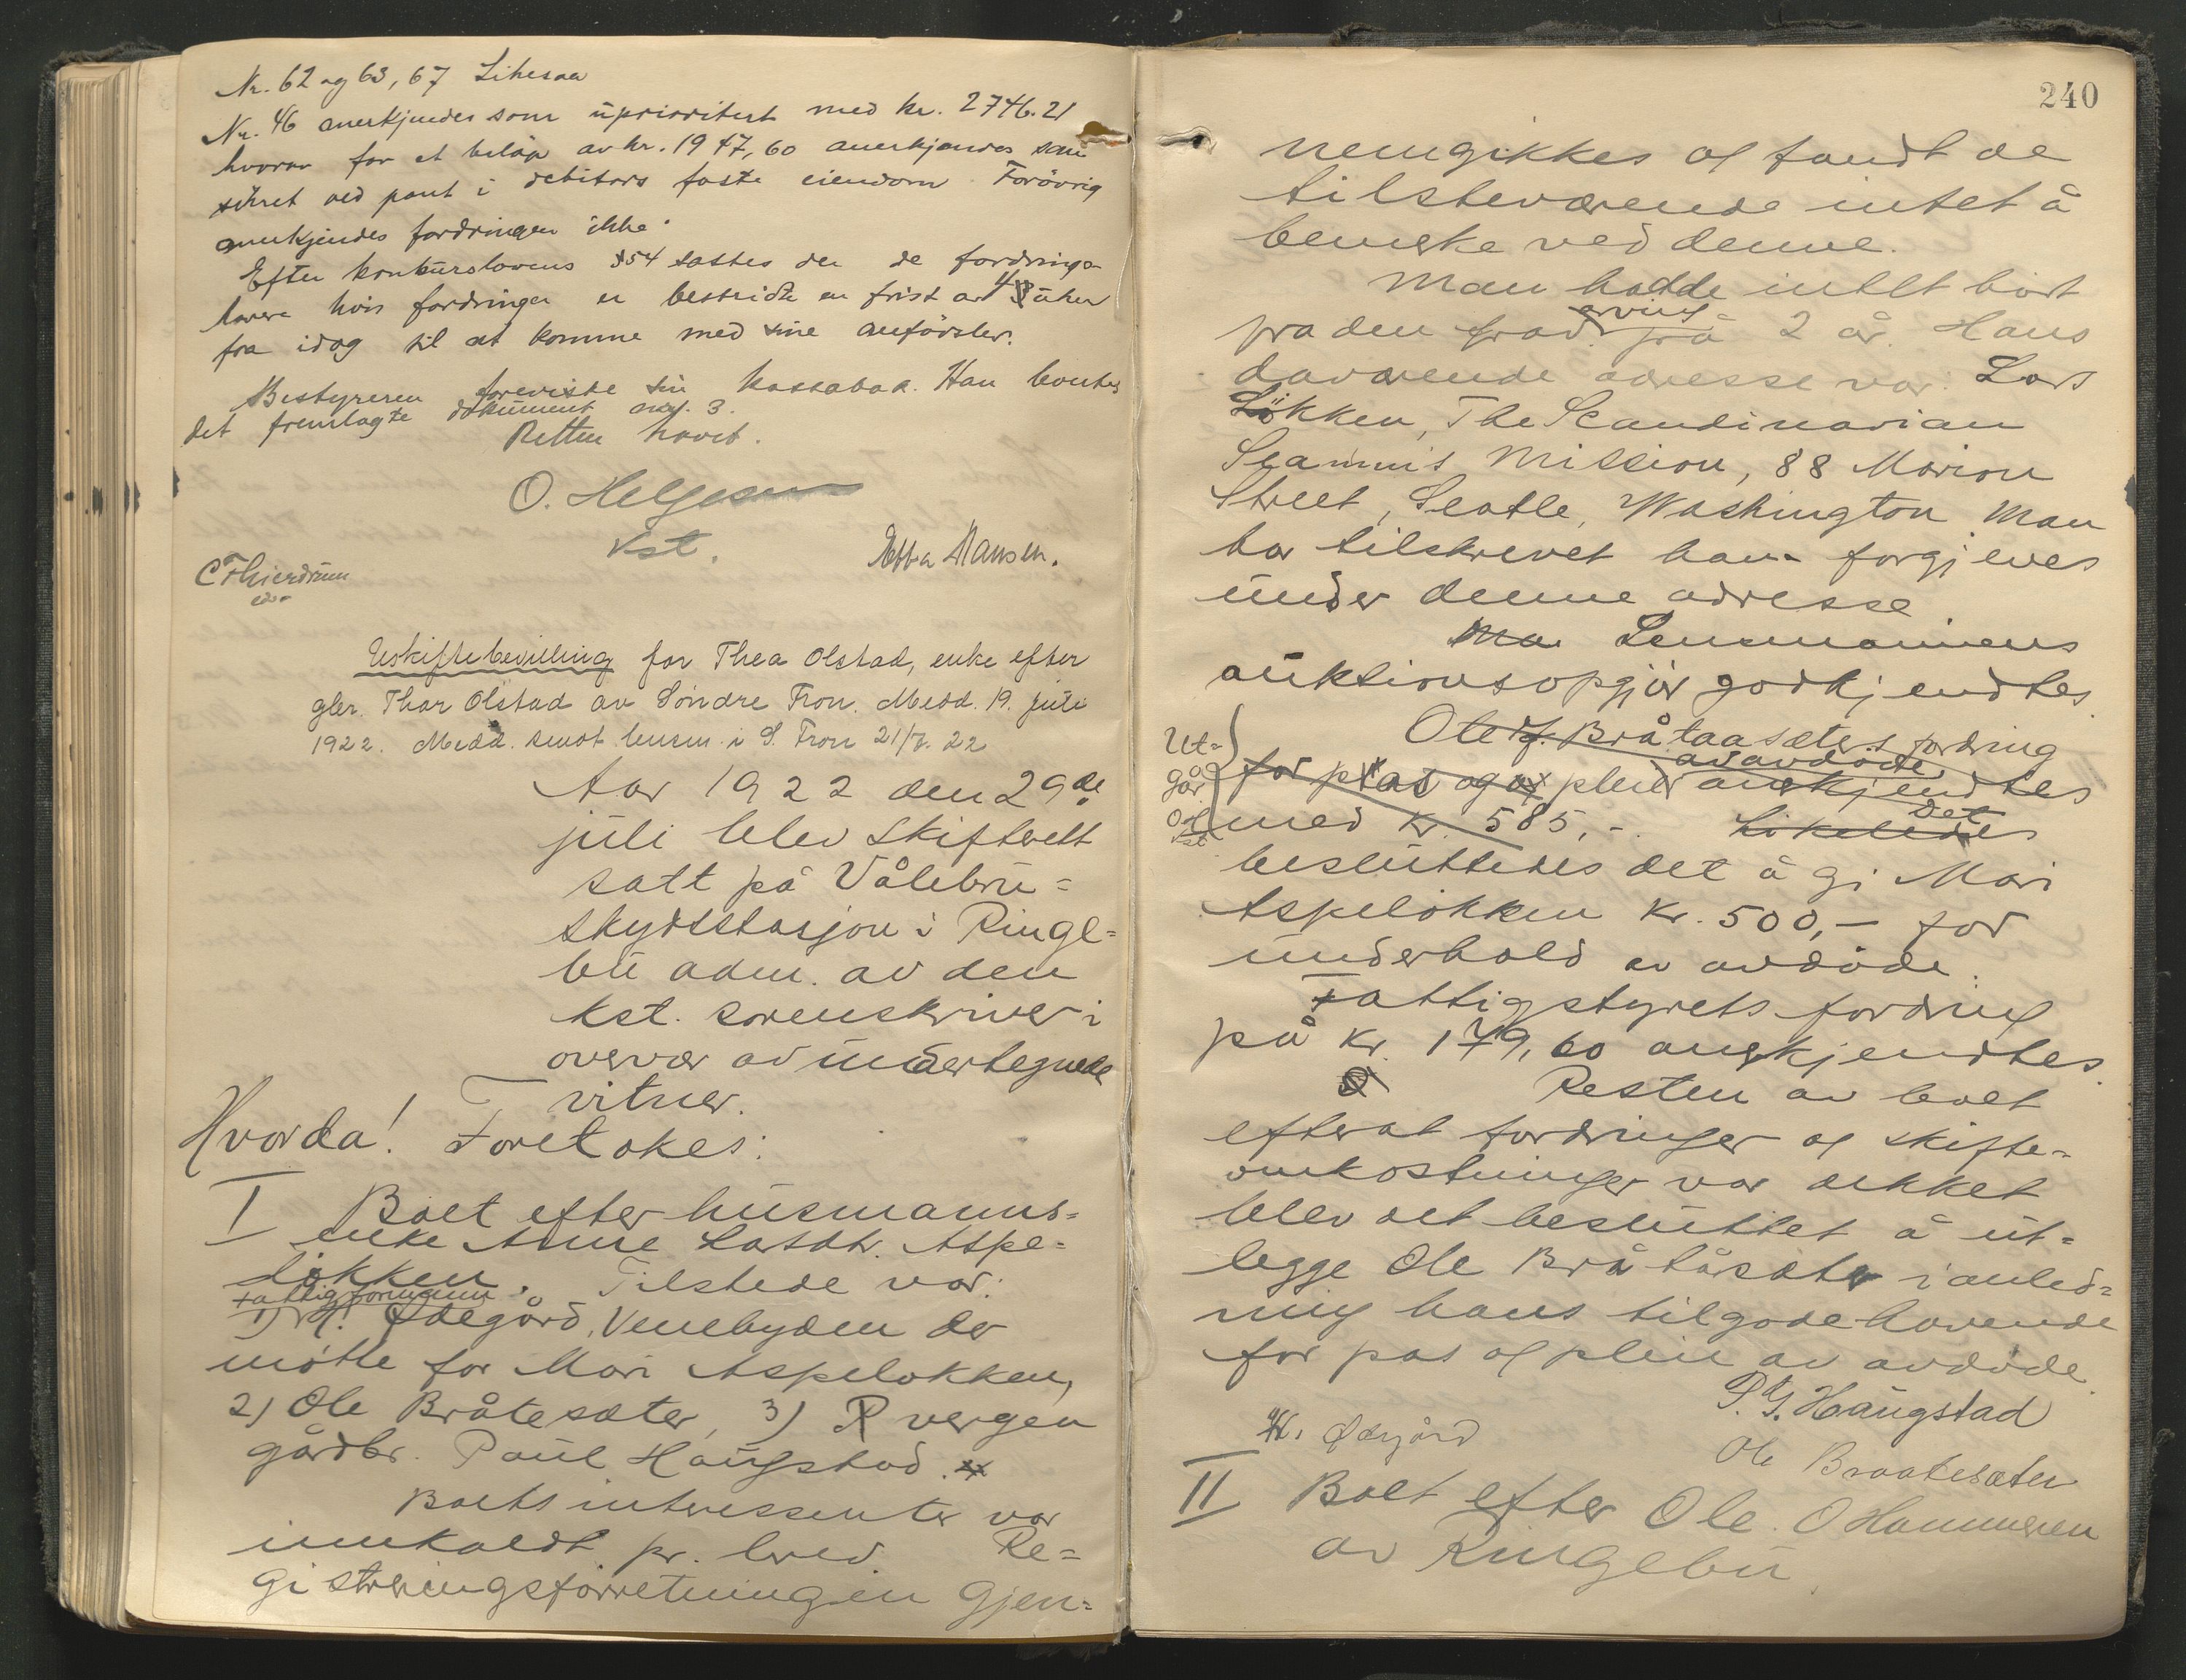 Nr. 62 og 63, 67 Likesaa
Nr. 46 anerkjendes som uprioritert med kr. 2746.21
hvorav for et beløp av kr. 1947,60 anerkjendes som
sikret ved pant i debitors faste eiendom. Forøvrig
anerkjendes fordringen ikke.
Efter konkurslovens § 54 sattes der de fordrings-
havere hvis fordringer er bestridt en frist av 4 uker
fra idag til at komme med sine anførsler.
Bestyreren foreviste sin kassabok. Han
det fremlagte dokument 3.
Retten hævet.
O. Helgesen
kst.
Ebba Hansen.
Uskiftebevilling for Thea Olstad, enke efter
Thor Olstad av Søndre Fron. Medd. 19. juli
1922. Medd. sendt lensm. i S. Fron 21/7. 22
Aar 1922 den 29de
juli blev skifterett
satt på Vålebru-
skydsstasjon i Ringe-
bu adm. av den
kst. sorenskriver i
overvær av undertegnede
vitner.
Hvorda! Foretokes:
I Boet efter husmanns-
enke Anne Larsdtr. Aspe-
løkken. Tilstede var:
fattigformann
1) H. Ødegård, Venebygden der
møtte for Mari Aspeløkken,
2) Ole Bråtesæter, 3) vergen
gårdbr. Paul Haugstad.
Boets interessenter var
innkaldt pr. brev. Re-
gistreringsforretningen gjen-
240
nemgikkes og fandt de
tilsteværende intet å
bemerke ved denne.
Man hadde intet hørt
fra den frav. arving på 2 år. Hans
daværende adresse var: Lars
Løkken, The Scandinavian
Seamen's Mission, 88 Marion
Street, Seatle, Washington Man
har tilskrevet ham forgjeves
under denne adresse.
Ma Lensmannens
auktionsopgjør godkjendtes.
Ole Bråtaasæters fordring
Ut-
går
for pas og pleie av avdøde anerkjendtes
med kr. 585,-. Likeledes det
besluttedes det å gi Mari
Aspeløkken kr. 500,- for
underhold av avdøde.
Fattigstyrets fordring
på kr. 179,60 anerkjendtes.
Resten av boet
efterat fordringer og skifte-
omkostninger var dekket
blev det besluttet å ut-
legge Ole Bråtåsæter i anled-
ning hans tilgodehavende
for pas og pleie av avdøde.
P. G. Haugstad
H. Ødegård
Ole Braatesæter
II Boet efter Ole O Hammeren
av Ringebu.